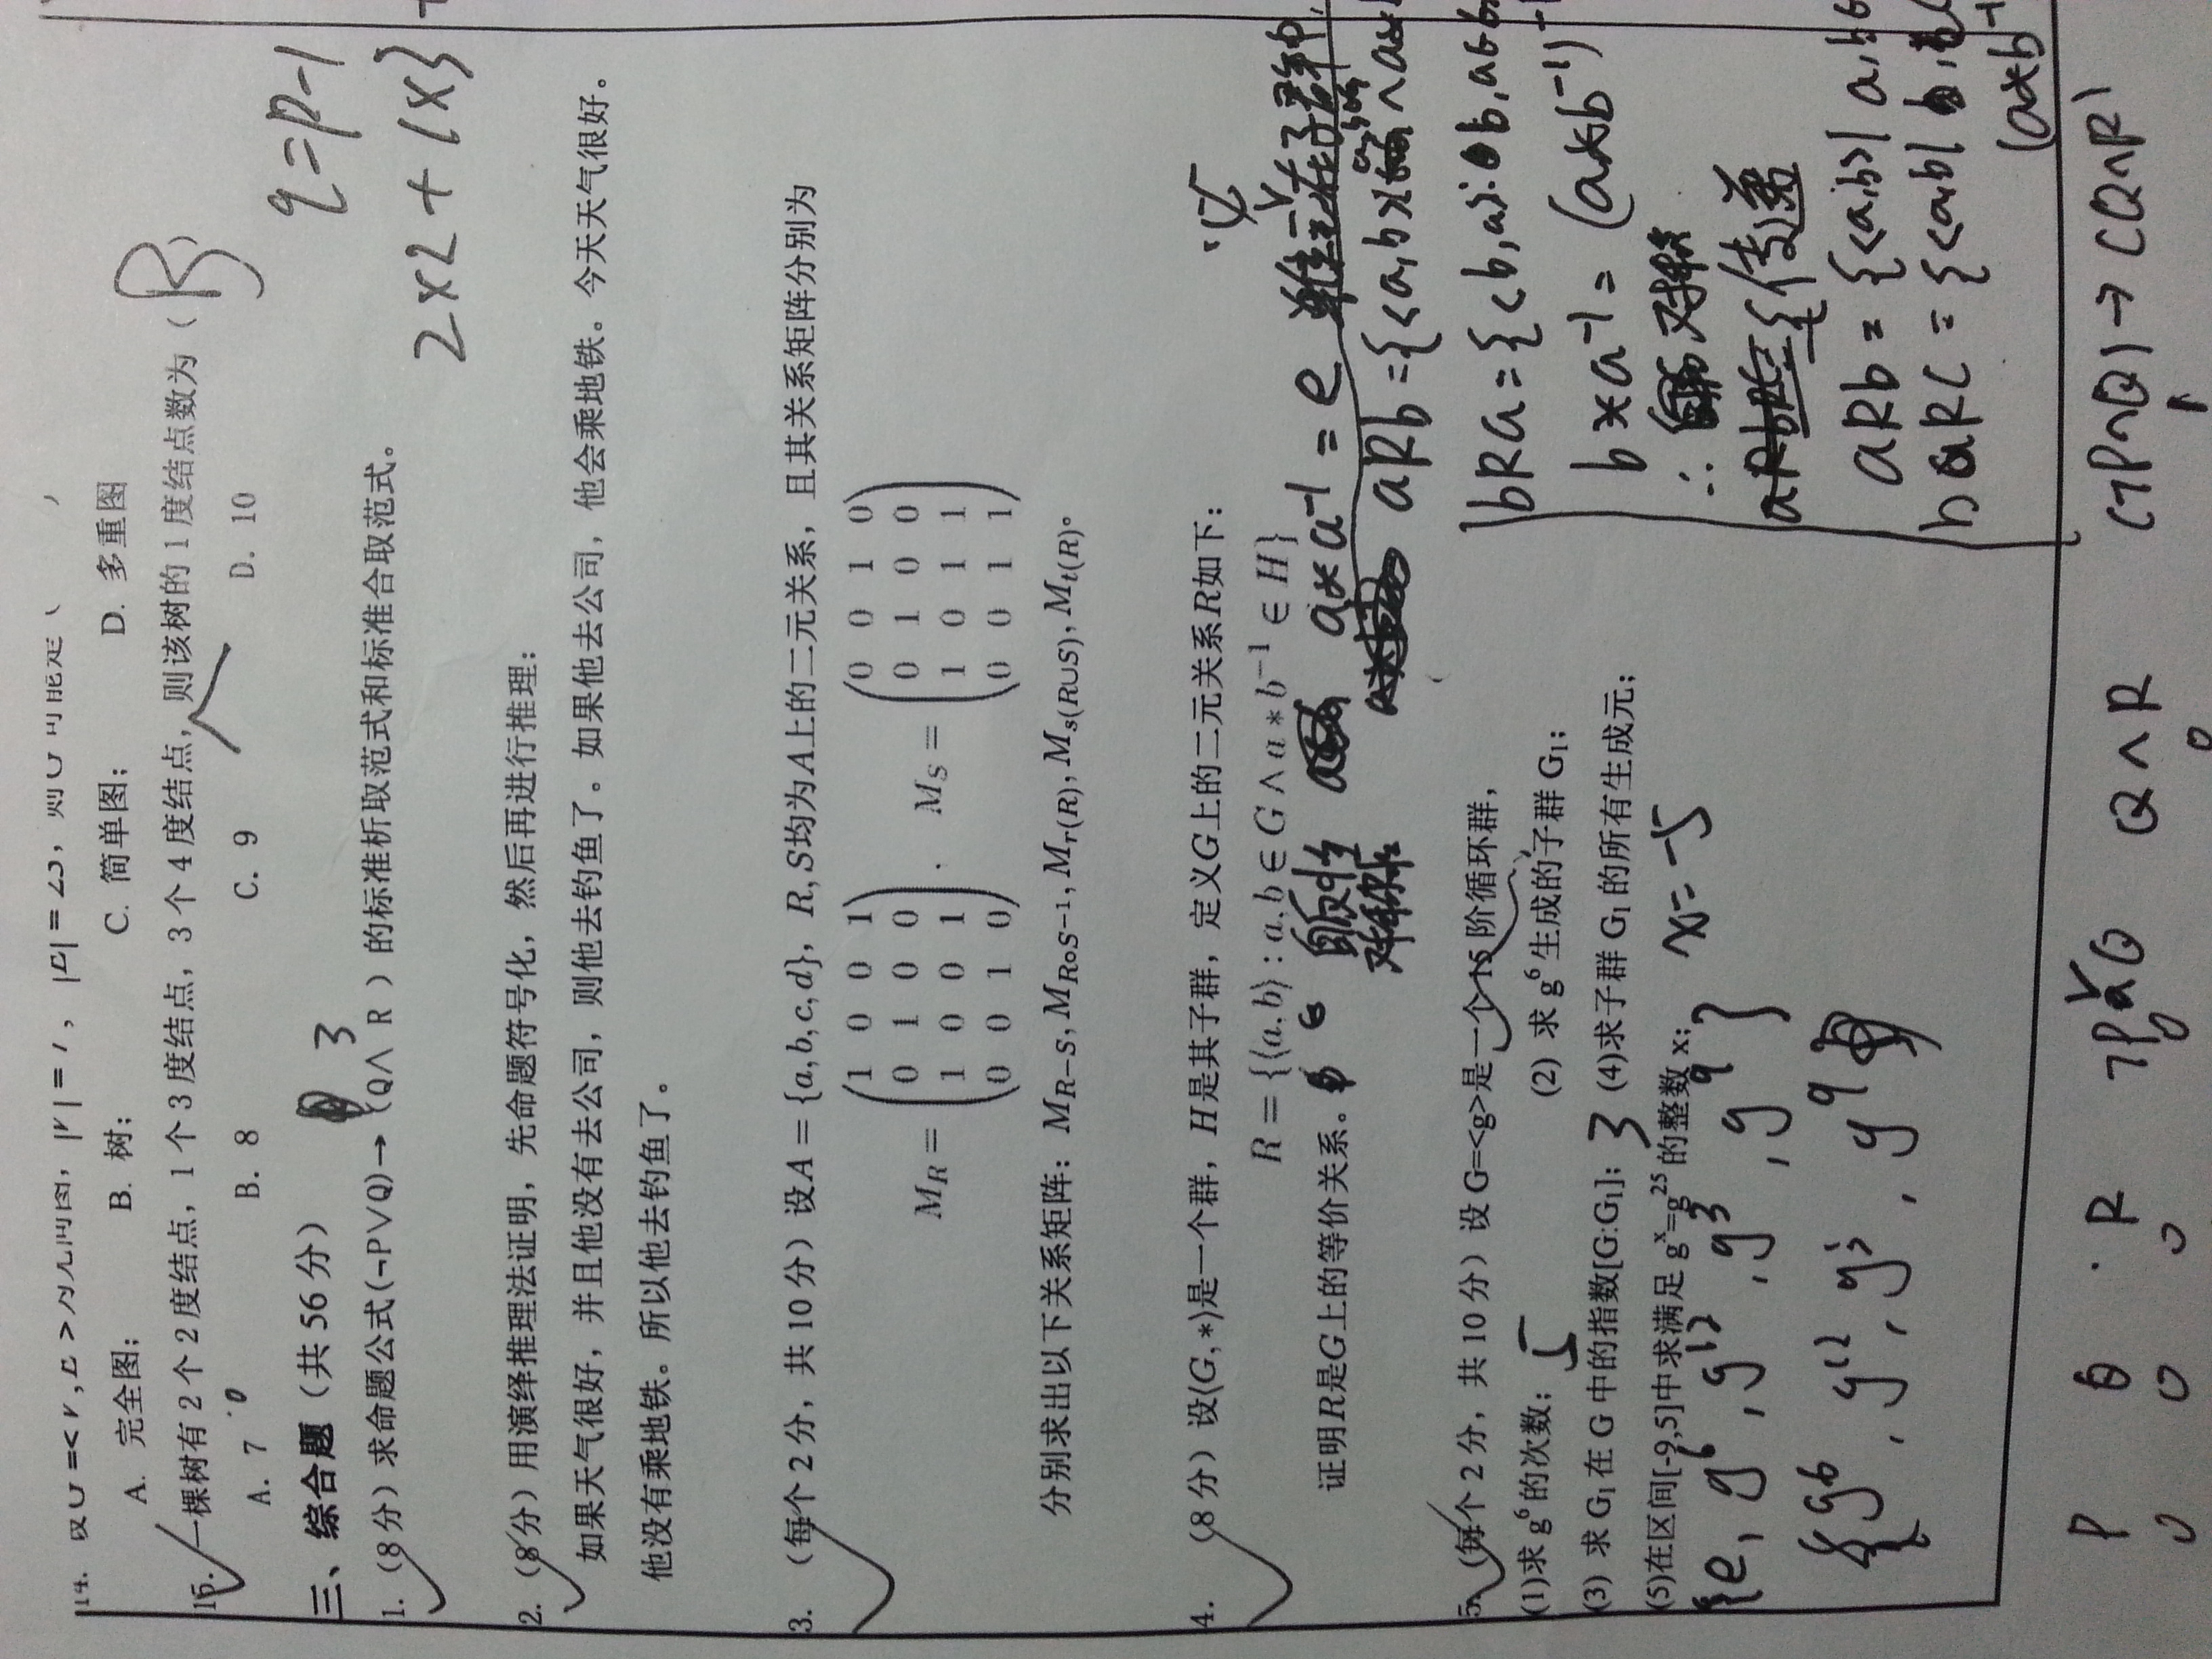 14. 设G=<V,E>为无向图，|V|=7，|E|=23，则G可能是（ ）
A. 完全图； B. 树； C. 简单图； D. 多重图
15. 一棵树有2个2度结点，1个3度结点，3个4度结点，则该树的1度结点数为（ B ）
A. 7 B. 8 C. 9 D. 10
q=p-1
三、综合题（共56分）
3
1.（8分）求命题公式(¬P∨Q)→（Q∧ R ）的标准析取范式和标准合取范式。
2×2+1×3+
2.（8分）用演绎推理法证明，先命题符号化，然后再进行推理：
如果天气很好，并且他没有去公司，则他去钓鱼了。如果他去公司，他会乘地铁。今天天气很好。
他没有乘地铁。所以他去钓鱼了。
3. （每个2分，共10分）设A = {a,b,c,d}，R,S均为A上的二元关系，且其关系矩阵分别为
1 0 0 1 0 0 1 0
0 1 0 0 0 1 0 0
M_R = . M_S =
1 0 0 1 1 0 1 1
0 0 1 0 0 0 1 1
分别求出以下关系矩阵：M_{R−S}, M_{R∘S^{−1}}, M_{r(R)}, M_{s(R∪S)}, M_{t(R)}。
4. （8分）设⟨G,∗⟩是一个群，H是其子群，定义G上的二元关系R如下：
R = {⟨a,b⟩ : a,b ∈ G ∧ a ∗ b^{−1} ∈ H}
证明R是G上的等价关系。 自反性 a*a^{-1} = e 在子群中,
对称性 aRb={<a,b>| ∧a*
5. （每个2分，共10分）设 G=<g>是一个 15 阶循环群，
bRa={<b,a>: b,a∈G
(1)求 g^6 的次数； 5 (2) 求 g^6 生成的子群 G₁；
b*a^{-1}= (a*b^{-1})^{-1}
(3) 求 G₁ 在 G 中的指数[G:G₁]； 3 (4)求子群 G₁ 的所有生成元；
(5)在区间[-9,5]中求满足 g^x=g^{25} 的整数 x； x=-5
∴ 对称
{e, g^6, g^{12}, g^3, g^9}
传递
{g^6, g^{12}, g^3, g^9}
aRb = {<a,b>| a,b∈
bRC = {<a,b|
(a*b^{-1}
P Q R ¬P∨Q Q∧R (¬P∧Q)→(Q∧R)
0 0 0 0 0 1